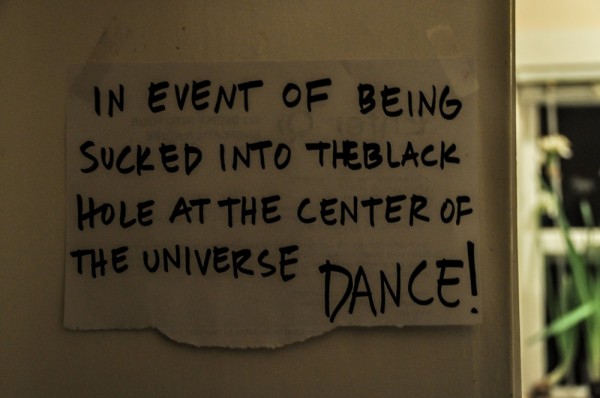 IN EVENT OF BEING
SUCKED INTO THEBLACK
HOLE AT THE CENTER OF
THE UNIVERSE DANCE!